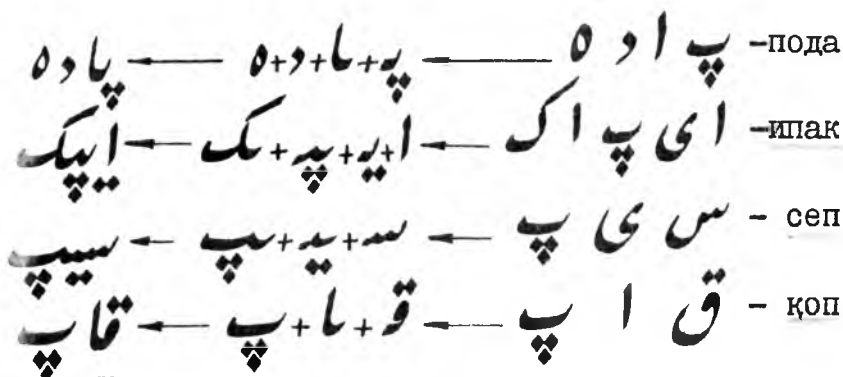 -пода پ ا د ه ← پـ+ـا+د+ه ← پاده
-ипак ا ی پ ا ک ← ا+یـ+ـپـ+ـک ← ایپک
- сеп س ی پ ← سـ+ـیـ+ـپ ← سیپ
- қоп ق ا پ ← قـ+ـا+پ ← قاپ